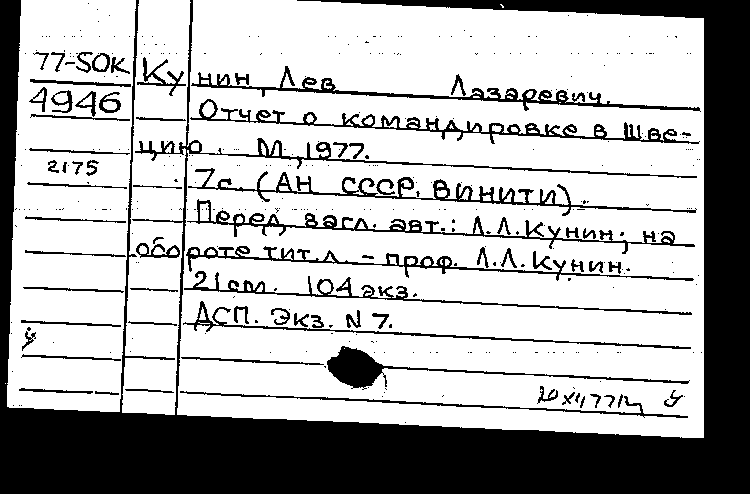 77-SOK Кунин, Лев Лазаревич.
4946 Отчет о командировке в Шве-
цию. М., 1977.
2175 7с. (АН СССР. ВИНИТИ).
Перед загл. авт.: Л.Л.Кунин; на
обороте тит.л. – проф. Л.Л.Кунин.
21см. 104 экз.
ДСП. Экз. N 7.